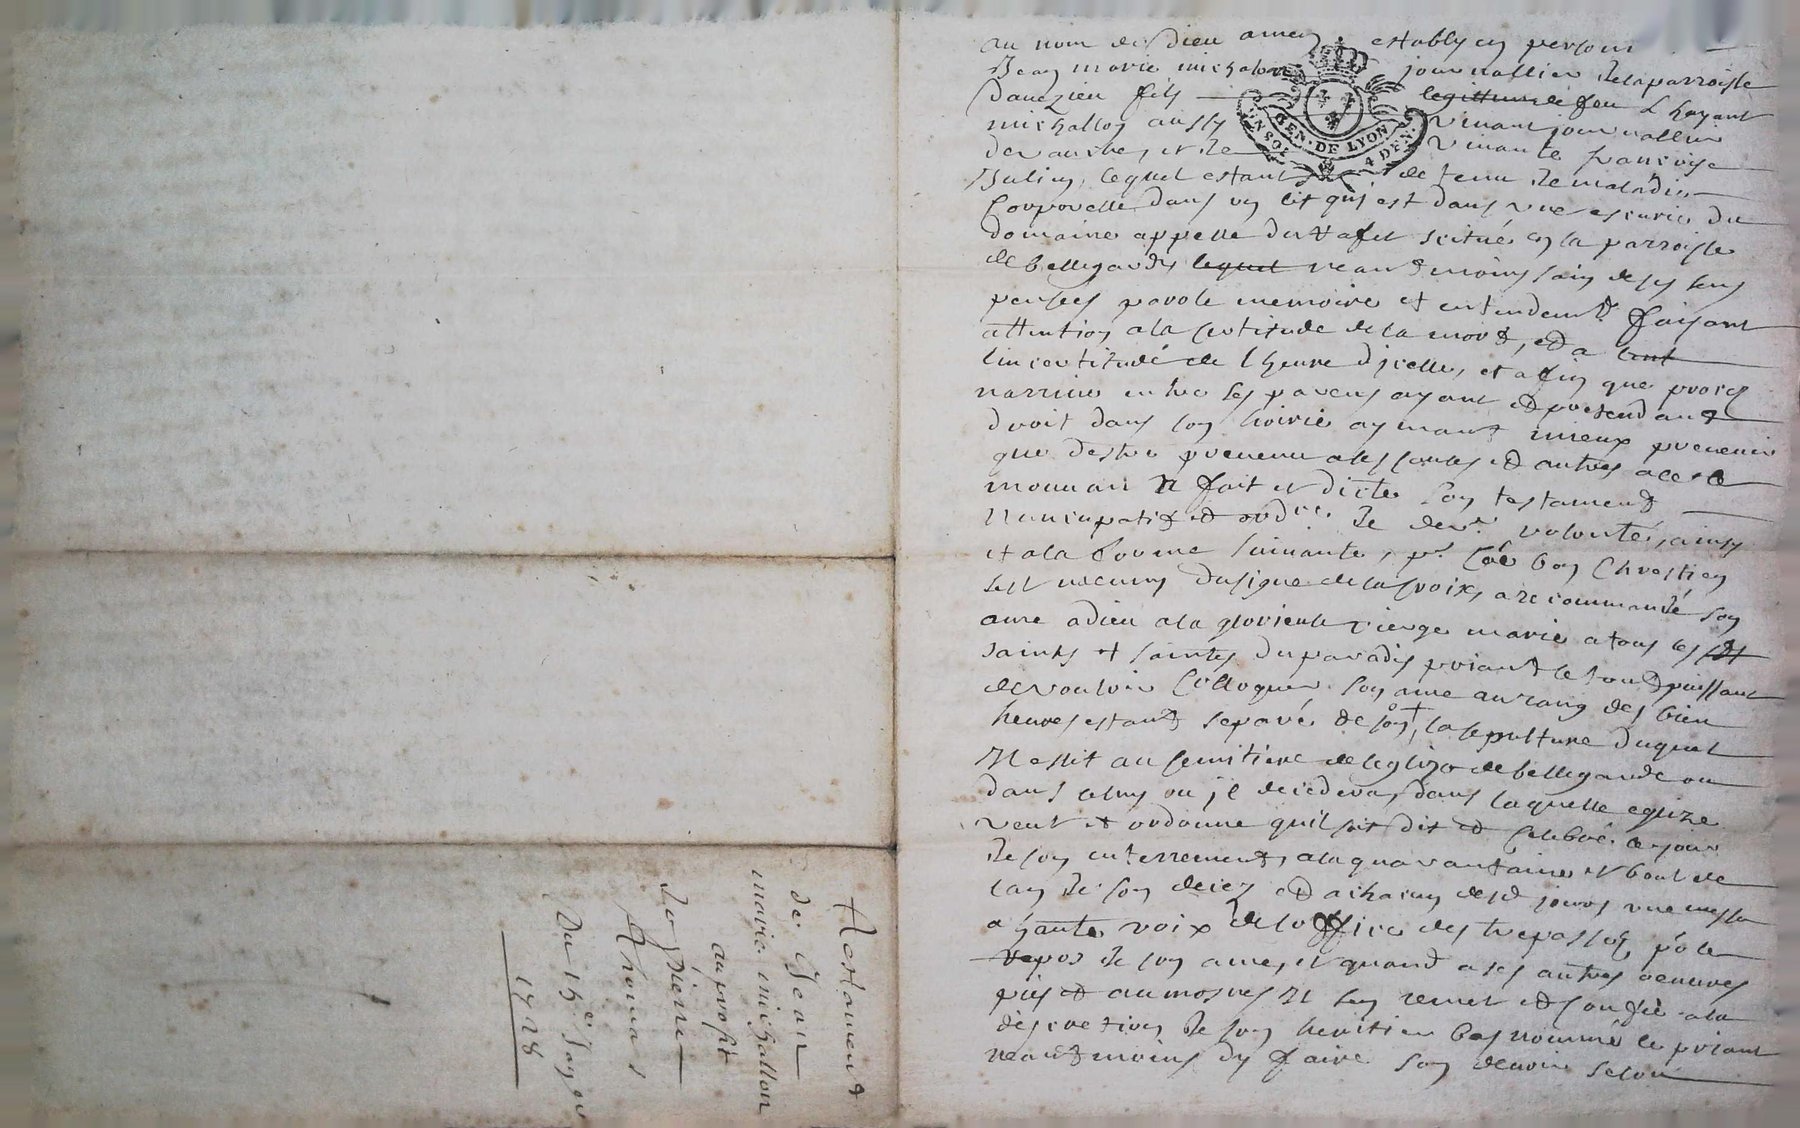 au nom de Dieu amen establyy en personne
Jean marie michalon journallier de la parroisse
Davezieu fils legittime de feu Lhayant
michallon aussy vivant journallier
GEN. DE LYON
4 DEN.
et de vivante françoyse
Julien, lequel estant detenu de maladie
Corporelle dans un lit qui est dans une escurie du
domaine appellé du scitué en la parroisse
de bellegarde lequel neantmoins sain de ses sens
pensées parole memoire et entendemt. faisant
attention a la certitude de la mort, et a
lincertitude de lheure dicelle, et afin que procez
narrive entre ses parens ayant et pretendant
droit dans son hoirie aymant mieux prevenir
que destre prevenu a ses et autres a ce le
mouvant a fait et dicté son testament
Nuncupatif et ordce. de derre. volonté, ainsy
et a la forme suivante, pt. Coe bon Chrestien
sest muny du signe de la croix, a recommandé son
ame a dieu a la glorieuse vierge marie a tous les
saints et saintes du paradis priant le tout puissant
de vouloir Colloquer son ame au rang des bien
heureux estant separé de son , la sepulture duquel
Il eslit au cemitiere de leglize de bellegarde ou
dans celuy ou il decedera, dans laquelle eglize
veut et ordonne quil soit dit et celebré le jour
de son enterrement, a la quarantaine et bout de
lan de son decez et a chacun desd jours une messe
a haute voix de loffice des trepassez po le
repos de son ame, et quand a ses autres oeuvres
pies et aumosnes Il sen remet et confie a la
discretion de son heritier bas nommé le priant
neantmoins dy faire son devoir selon
Testament
de Jean
marie michallon
au profit
de
Thomas
Du 15e.
1728